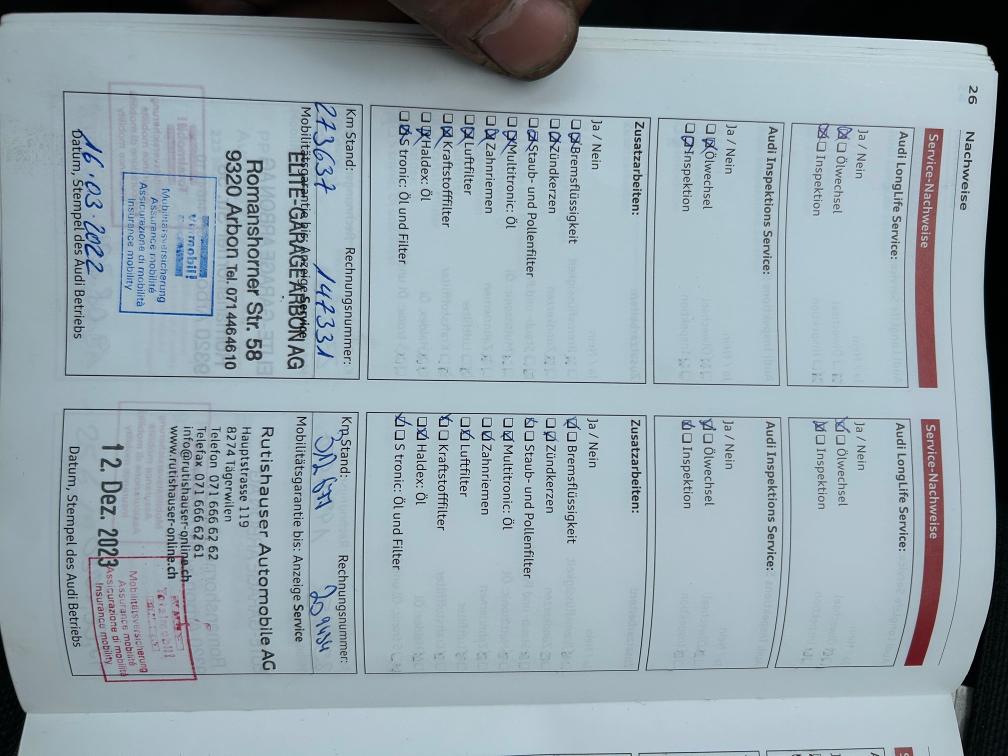 26
Nachweise
Service-Nachweise
Audi LongLife Service:
Ja / Nein
Ölwechsel
Inspektion
Audi Inspektions Service:
Ja / Nein
Ölwechsel
Inspektion
Zusatzarbeiten:
Ja / Nein
Bremsflüssigkeit
Zündkerzen
Staub- und Pollenfilter
Multitronic: Öl
Zahnriemen
Luftfilter
Kraftstofffilter
Haldex: Öl
S tronic: Öl und Filter
Km Stand: Rechnungsnummer:
273637 147331
Mobilitätsgarantie bis: Anzeige Service
ELITE-GARAGE ARBON AG
Romanshorner Str. 58
9320 Arbon Tel. 071 446 46 10
mobil!
Mobilitätsversicherung
Assurance mobilité
Assicurazione di mobilità
Insurance mobility
16.03.2022
Datum, Stempel des Audi Betriebs
Service-Nachweise
Audi LongLife Service:
Ja / Nein
Ölwechsel
Inspektion
Audi Inspektions Service:
Ja / Nein
Ölwechsel
Inspektion
Zusatzarbeiten:
Ja / Nein
Bremsflüssigkeit
Zündkerzen
Staub- und Pollenfilter
Multitronic: Öl
Zahnriemen
Luftfilter
Kraftstofffilter
Haldex: Öl
S tronic: Öl und Filter
Km Stand: Rechnungsnummer:
Mobilitätsgarantie bis: Anzeige Service
Rutishauser Automobile AG
Hauptstrasse 119
8274 Tägerwilen
Telefon 071 666 62 62
Telefax 071 666 62 61
info@rutishauser-online.ch
www.rutishauser-online.ch
12. Dez. 2023
Mobilitätsversicherung
Assurance mobilité
Assicurazione di mobilità
Insurance mobility
Datum, Stempel des Audi Betriebs